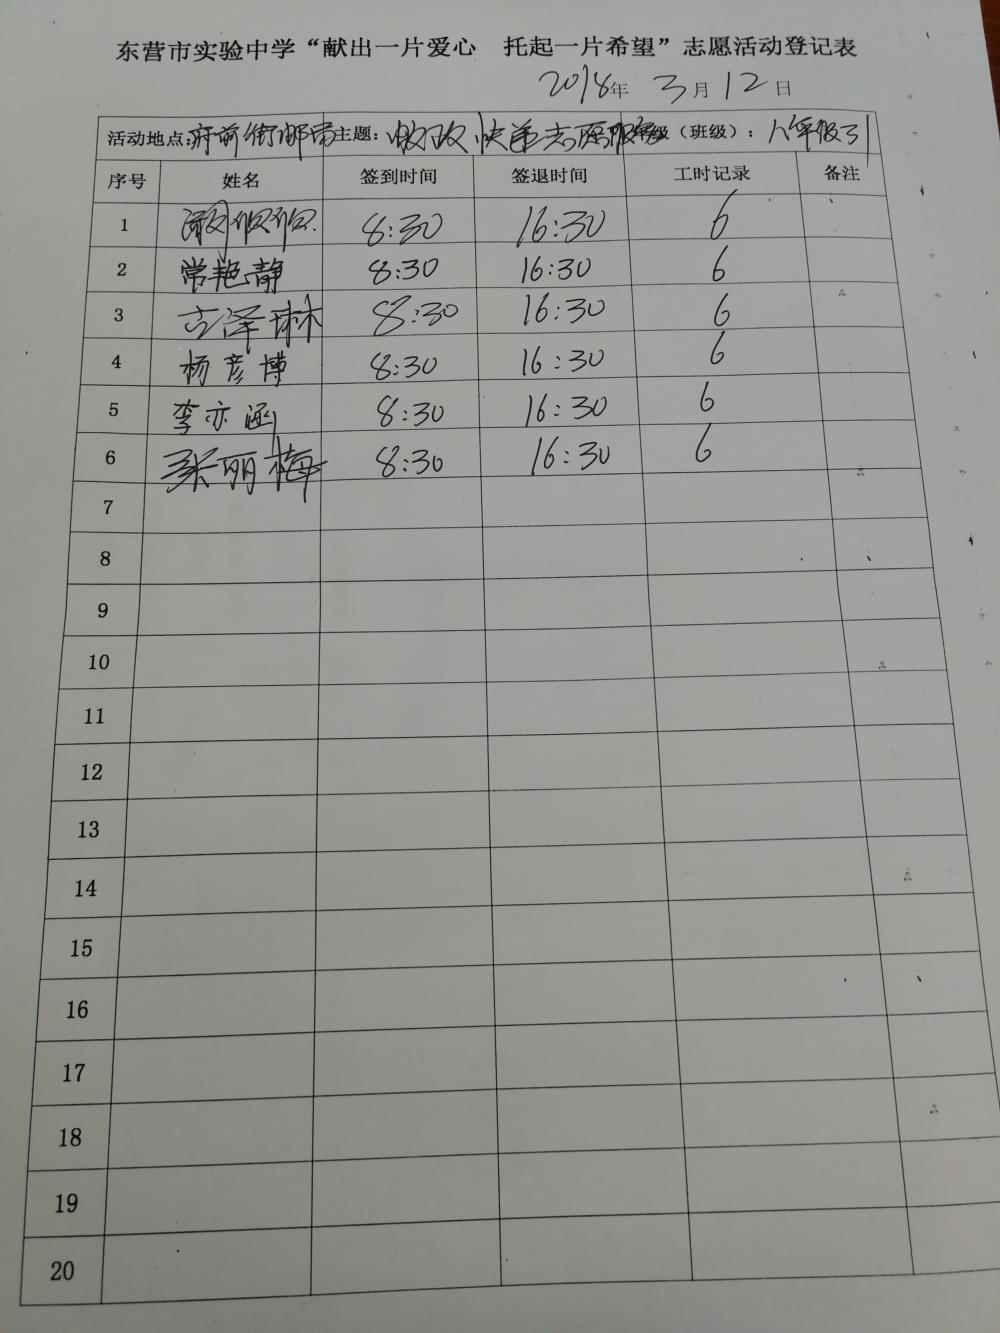 东营市实验中学“献出一片爱心 托起一片希望”志愿活动登记表
2018年 3月12日
活动地点:府前街邮局 主题: 邮政快递志愿服务 级（班级）: 八年级
序号 姓名 签到时间 签退时间 工时记录 备注
1 8:30 16:30 6
2 常艳静 8:30 16:30 6
3 古泽琳 8:30 16:30 6
4 杨彦博 8:30 16:30 6
5 李亦涵 8:30 16:30 6
6 张丽梅 8:30 16:30 6
7
8
9
10
11
12
13
14
15
16
17
18
19
20